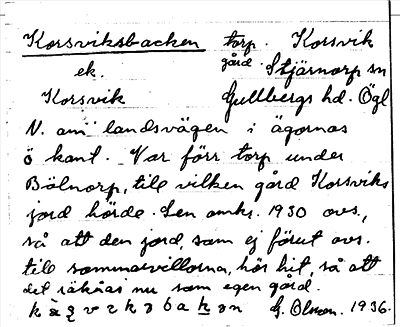 Korsviksbacken torp. Korsvik
ek. gård. Stjärnorp sn
Korsvik Gullbergs hd. Ögl
N. om landsvägen i ägornas
ö kant. Var förr torp under
Bälnorp, till vilken gård Korsviks
jord hörde. Den omkr. 1930 avs.,
så att den jord, som ej förut avs.
till sommarvillorna, hör hit, så att
det räknas nu som egen gård.
G. Olmon. 1936.